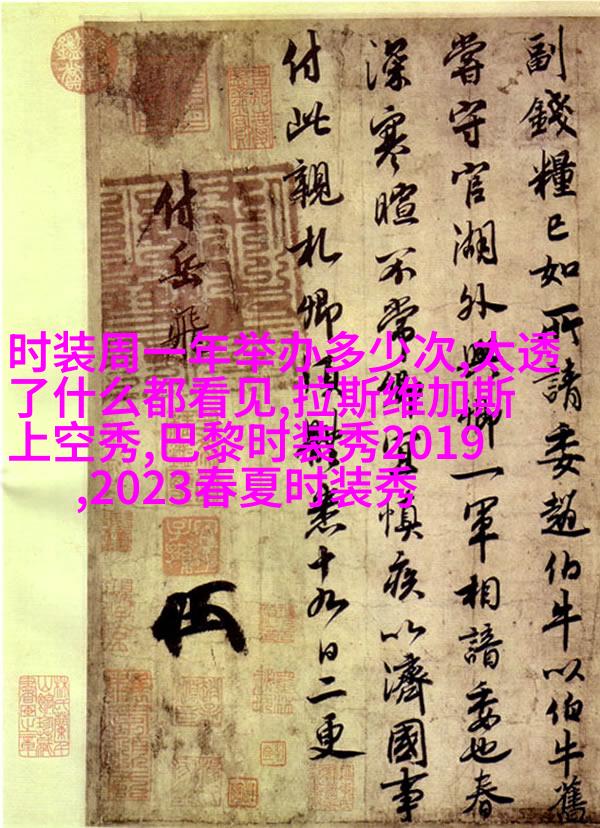 时装周一年举办多少次,太透
了什么都看见,拉斯维加斯
上空秀,巴黎时装秀2019
,2023春夏时装秀
副錢糧已如所請委趙伯牛以伯牛舊
嘗守官湖外與卿一軍相諳委也春
深寒暄不常卿宜慎疾以濟國事
付此親札卿須體悉十九日二更
付岳飛